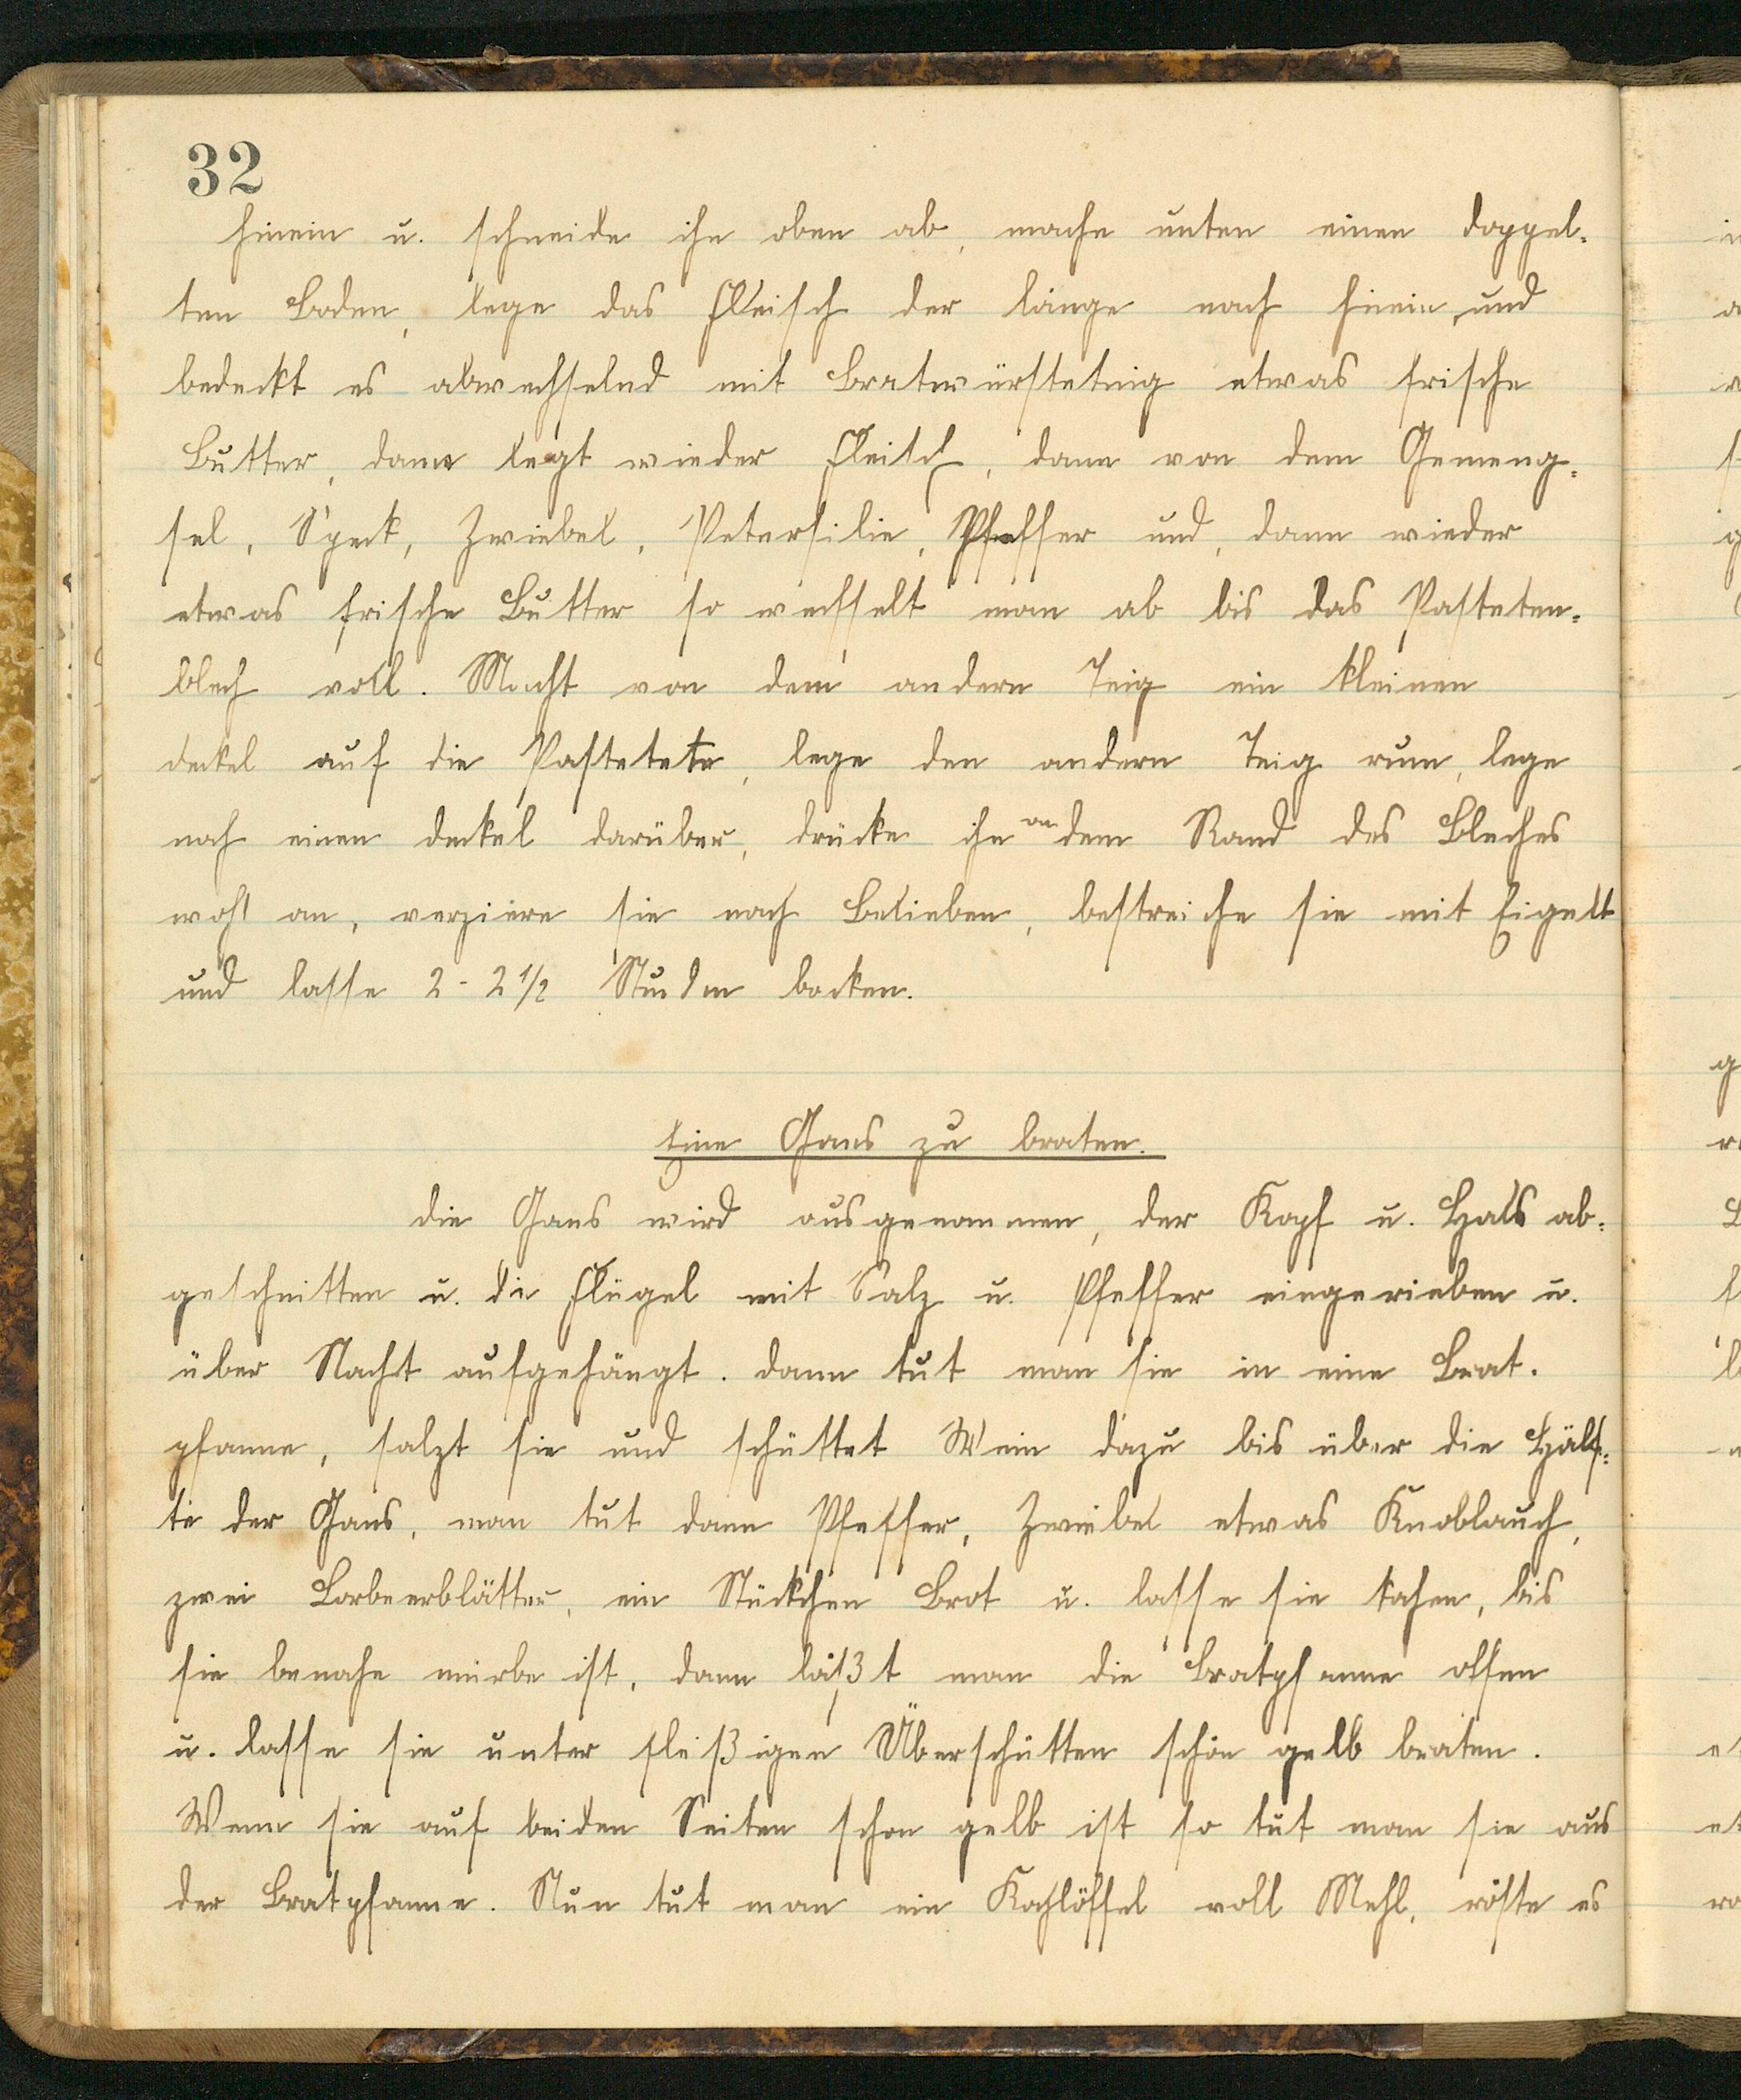 32
hinein u. schneide ihn oben ab, mache unten einen doppel-
ten Boden, lege das Fleisch der länge nach hinein, und
bedeckt es abwechselnd mit Bratwürsteteig etwas frische
Butter, dann legt wieder Fleisch, dann von dem Gemeng-
sel, Speck, Zwiebel, Petersilie, Pfeffer und, dann wieder
etwas frische Butter so wechselt man ab bis das Pasteten-
blech voll. Macht von dem andern Teig ein kleinen
deckel auf die Pastetete, lege den andern Teig rum, lege
noch einen deckel darüber, drücke ihn an dem Rand des Bleches
wohl an, verziere sie nach Belieben, bestreiche sie mit Eigelb
und lasse 2 - 2 1/2 Stunden backen.
Eine Gans zu braten.
die Gans wird ausgenommen, der Kopf u. Hals ab-
geschnitten u. die Flügel mit Salz u. Pfeffer eingerieben u.
über Nacht aufgehängt. dann tut man sie in eine Brat-
pfanne, salzt sie und schüttet Wein dazu bis über die Hälf-
te der Gans, man tut dann Pfeffer, Zwiebel etwas Knoblauch,
zwei Lorbeerblätter, ein Stückchen Brot u. lasse sie kochen, bis
sie benahe mürbe ist, dann läßt man die Bratpfanne offen
u. lasse sie unter fleißigen Überschütten schön gelb braten.
Wenn sie auf beiden Seiten schon gelb ist so tut man sie aus
der Bratpfanne. Nun tut man ein Kochlöffel voll Mehl, röste es